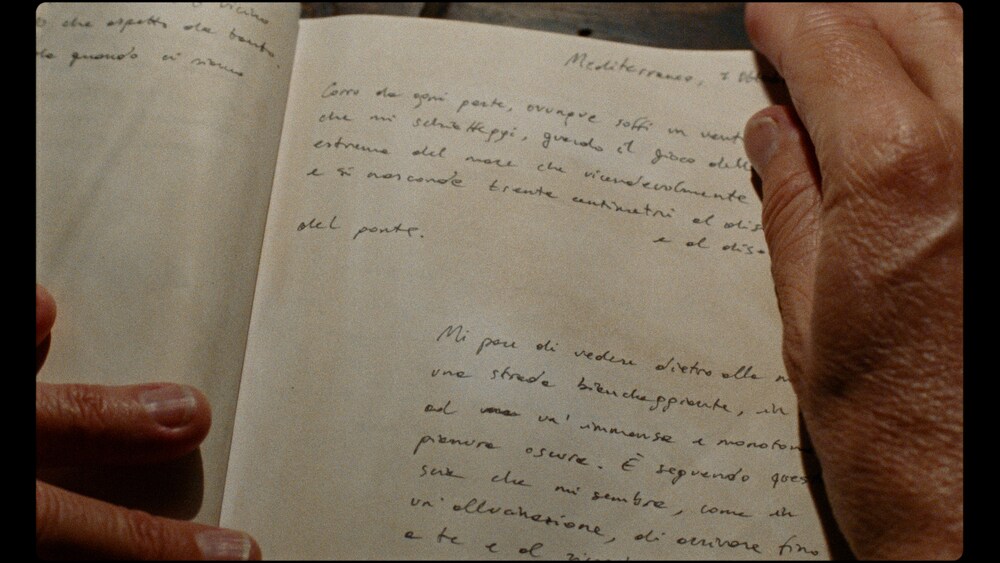 vicino
che aspetto da tanto.
quando ci siamo
Mediterraneo, 7
Corro da ogni parte, ovunque soffi un vent
che mi schiaffeggi, guardo il gioco dell
estremo del mare che vicendevolmente
e si nasconde trenta centimetri al dis
e al diso
del ponte.
Mi pare di vedere dietro alla n
una strada biancheggiante, in
ad un' immensa e monoton
pianura oscura. È seguendo ques
scia che mi sembra, come in
un' allucinazione, di arrivare fino
a te e al